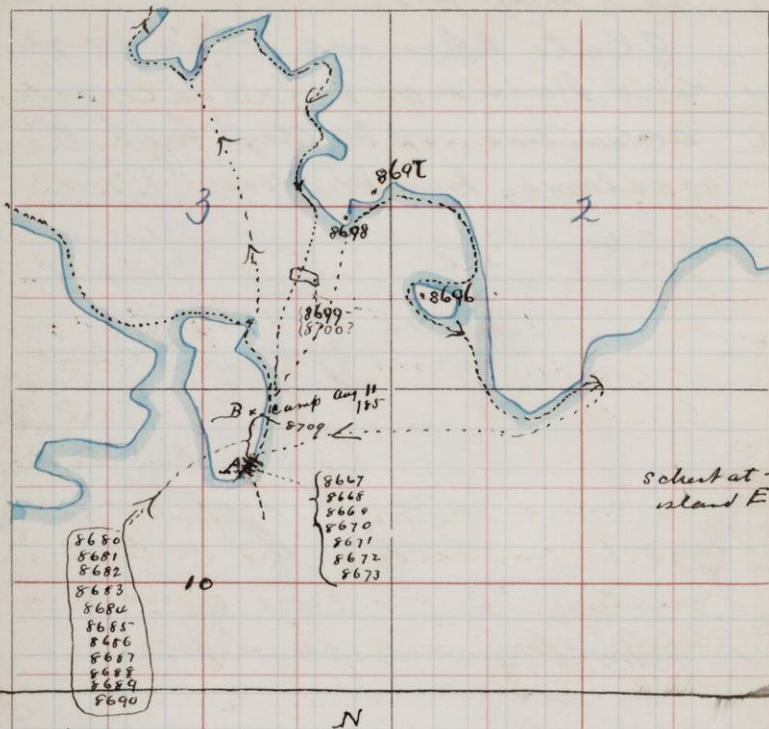 3
2
8697
8698
8696
8699
8700?
B x camp Aug 11
185
8709
A
8667
8668
8669
8670
8671
8672
8673
schist at
island E
8680
8681
8682
8683
8684
8685
8686
8687
8688
8689
8690
10
N